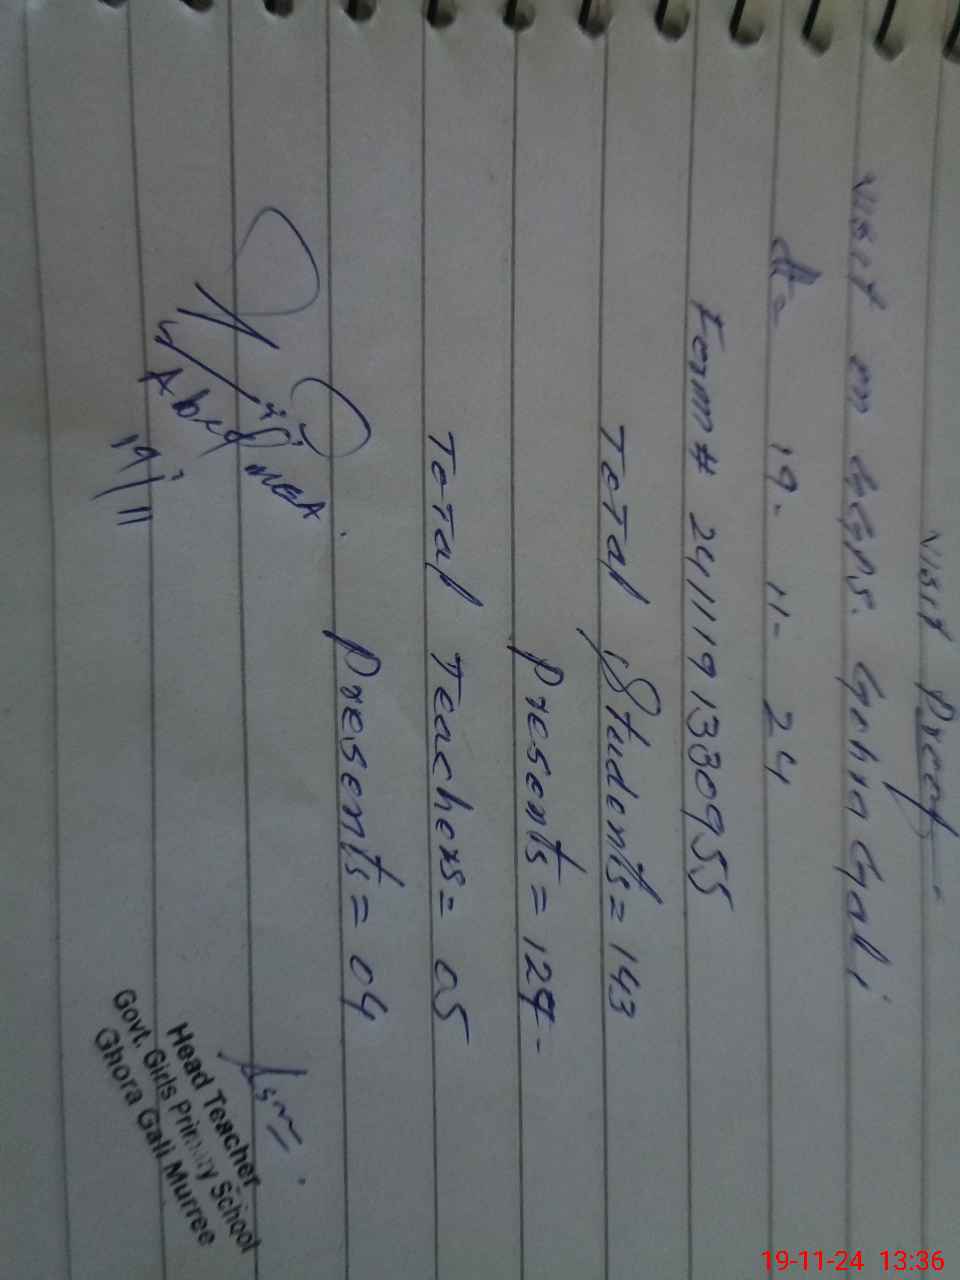 Visit Proof
Visit on GGPS. Gohra Gali
dt = 19-11-24
Form # 2411191330955
Total Students = 143
Presents = 127-
Total Teachers = 05
Presents = 04
Abid MEA
19/11
Head Teacher
Govt. Girls Primary School
Ghora Gali Murree
19-11-24 13:36